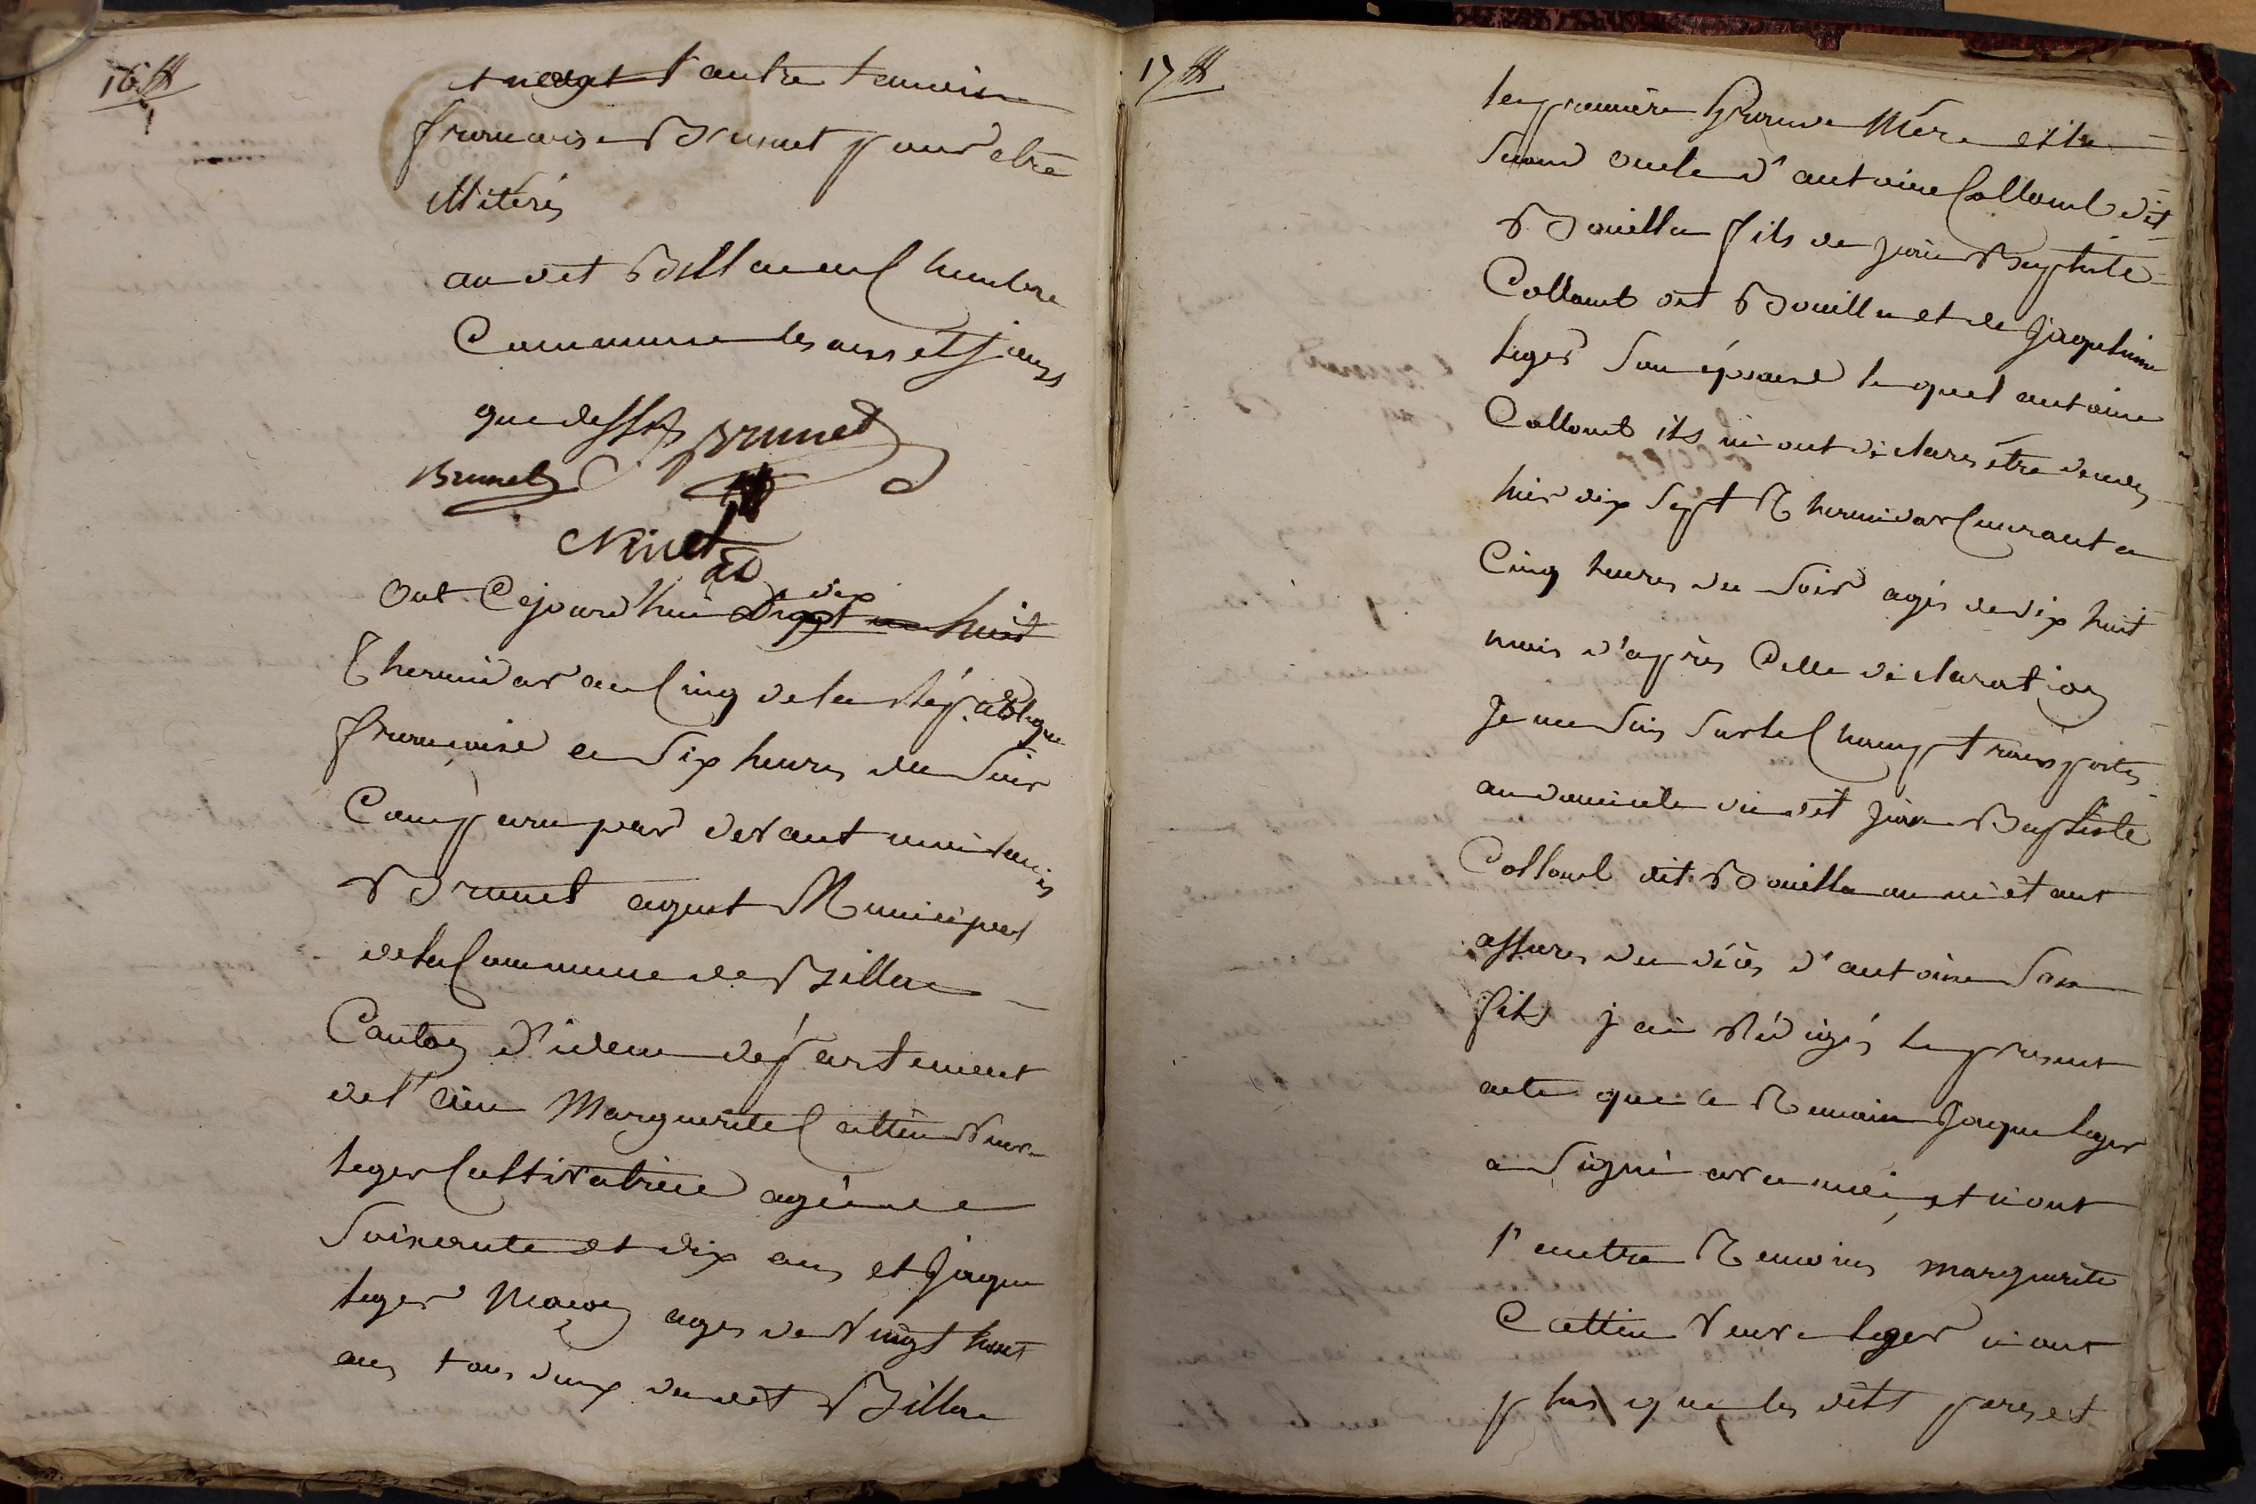 16
et non l'autre temoin
francoise Brunet pour etre
illiterés
au dit Billa en chambre
Commune les ans et jours
que dessus Brunet
Brunet
Ninet
ad
dix
Cejourd'hui huit
Thermidor an Cinq de la République
françoise a Six heures du Soir
Comparu par devant moi
Brunet agent Municipal
de la Commune de Billa
Canton d'idem département
de l'ain Marguerite Cattin veuve
leger Cultivatrice agée de
Soixante et dix ans et Jaque
leger Maçon ages de vingt huit
ans tous deux du dit Billa
17
la premiere Grande Mére et le
Second oncle d'antoine Collomb dit
Bouilla fils de jean Baptiste
Collomb dit Bouilla et de Jaqueline
leger Son épouse lequel antoine
Collomb ils m'ont déclaré être décédés
hier dix Sept Thermidor Courant a
Cinq heures du Soir agés de dix huit
mois d'après Celle déclaration
Je me Suis Sur le Champ transportés
au domicile du dit jean Baptiste
Collomb dit Bouilla ou m'étant
assurés du décès d'antoine Son
fils j'ai Rédigés le present
acte que le Temoin Jaque leger
a Signé avec moi, et non
l'autre Temoins marguerite
Cattin veuve leger non
plus que les dits pere et